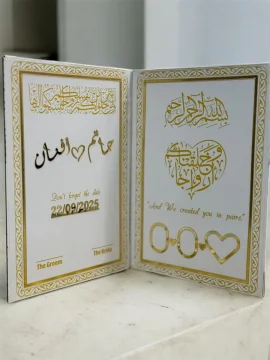 حاتم
Don't forget the date
22/09/2025
The Bride
The Groom
بسم الله الرحمن الرحيم
وخلقناكم
أزواجا
"And We created you in pairs"